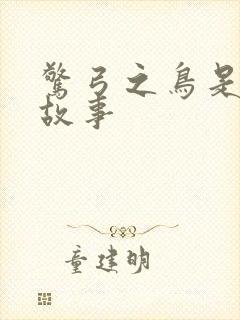 驚弓之鳥是
故事
童建明